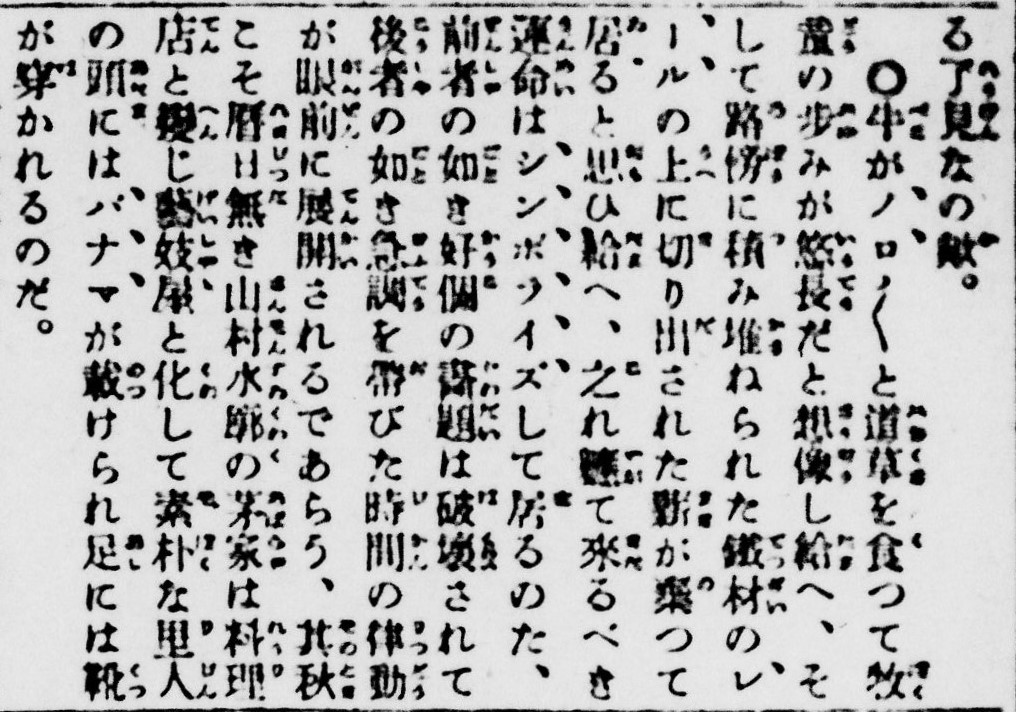 る了見なの敵。
〇牛がノロ〳〵と道草を食つて牧
童の歩みが悠長だと想像し給へ、そ
して路傍に積み堆ねられた鐵材のレ
ールの上に切り出された薪が乗つて
居ると思ひ給へ、之れ軈て来るべき
運命はシンボライズして居るのだ、
前者の如き好個の詩題は破壊されて
後者の如き急調を帯びた時間の律動
が眼前に展開されるであらう、其秋
こそ暦日無き山村水廓の茅家は料理
店と變じ藝妓屋と化して素朴な里人
の頭にはパナマが載けられ足には靴
が穿かれるのだ。